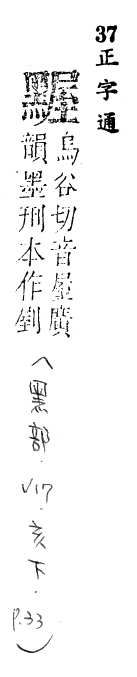 37正字通
烏谷切音屋廣
韻墨刑本作
(黑部.V17.亥下.P.33)